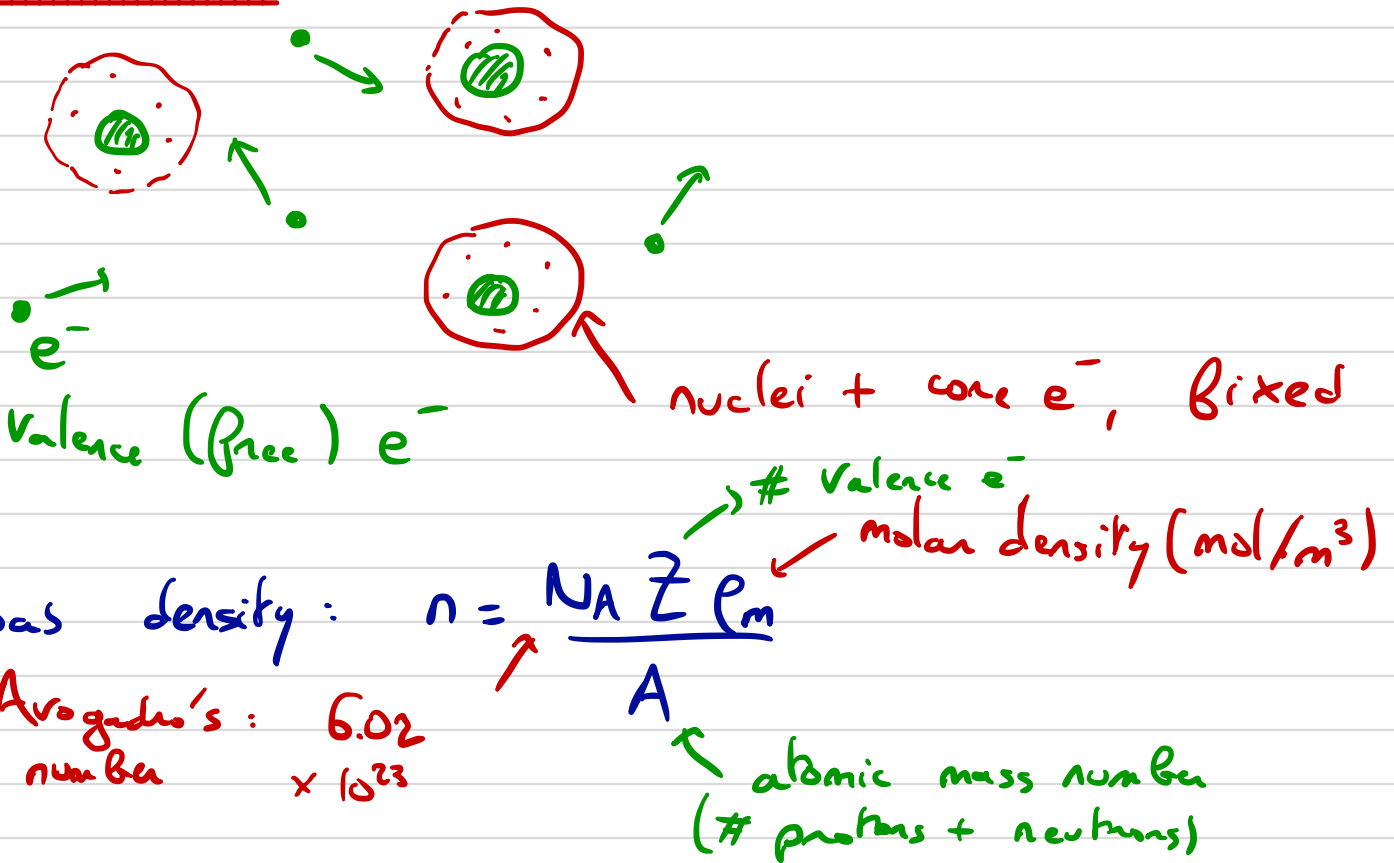 e⁻
Valence (free) e⁻
nuclei + core e⁻, fixed
# Valence e⁻
molar density (mol/m³)
density: n = N_A Z ρ_m / A
Avogadro's: 6.02
number × 10²³
atomic mass number
(# protons + neutrons)